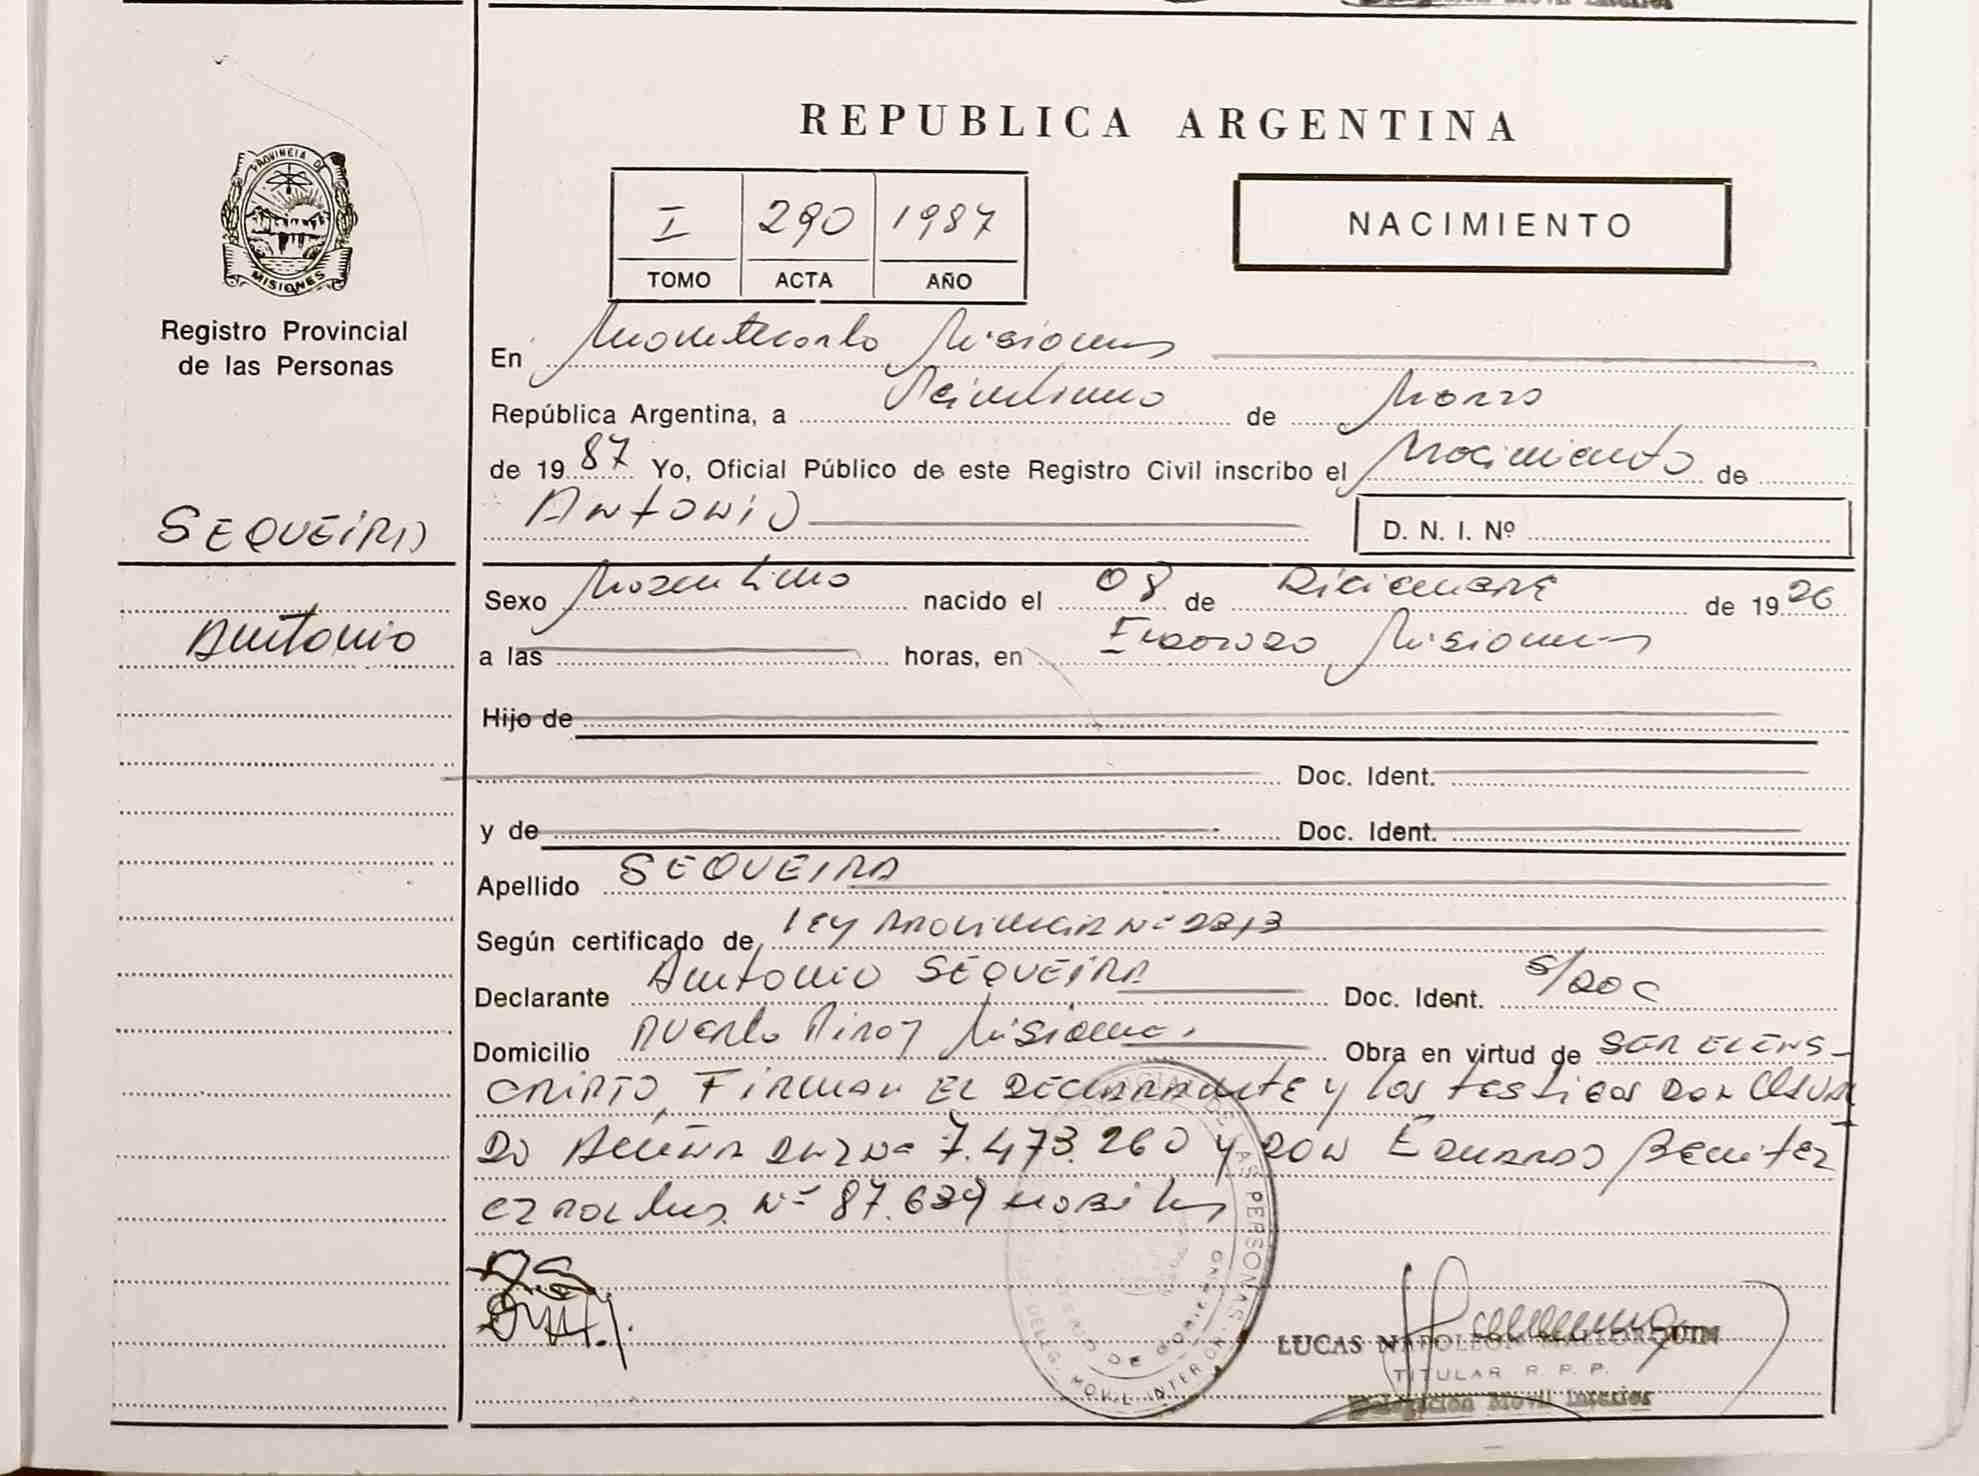 REPUBLICA ARGENTINA
PROVINCIA DE
MISIONES
Registro Provincial
de las Personas
I 290 1987
TOMO ACTA AÑO
NACIMIENTO
En Montecarlo Misiones
República Argentina, a Veintiuno de Marzo
de 1987 Yo, Oficial Público de este Registro Civil inscribo el Nacimiento de
ANTONIO
D. N. I. Nº
SEQUEIRA
Antonio
Sexo Masculino nacido el 08 de Diciembre de 1926
a las horas, en Eldorado Misiones
Hijo de
Doc. Ident.
y de Doc. Ident.
Apellido SEQUEIRA
Según certificado de, Ley Provincial Nº 2313
Declarante Antonio SEQUEIRA Doc. Ident. S/DOC
Domicilio Puerto Piray Misiones Obra en virtud de SER EL INS-
CRIPTO, Firman EL DECLARANTE y los testigos DON OSVAL
DO ACUÑA DNI Nº 7.473.260 y DON EDUARDO Benitez
Nº 87.639
LUCAS NAPOLEON MALLORQUIN
TITULAR R. P. P.
Delegación Movil Interior